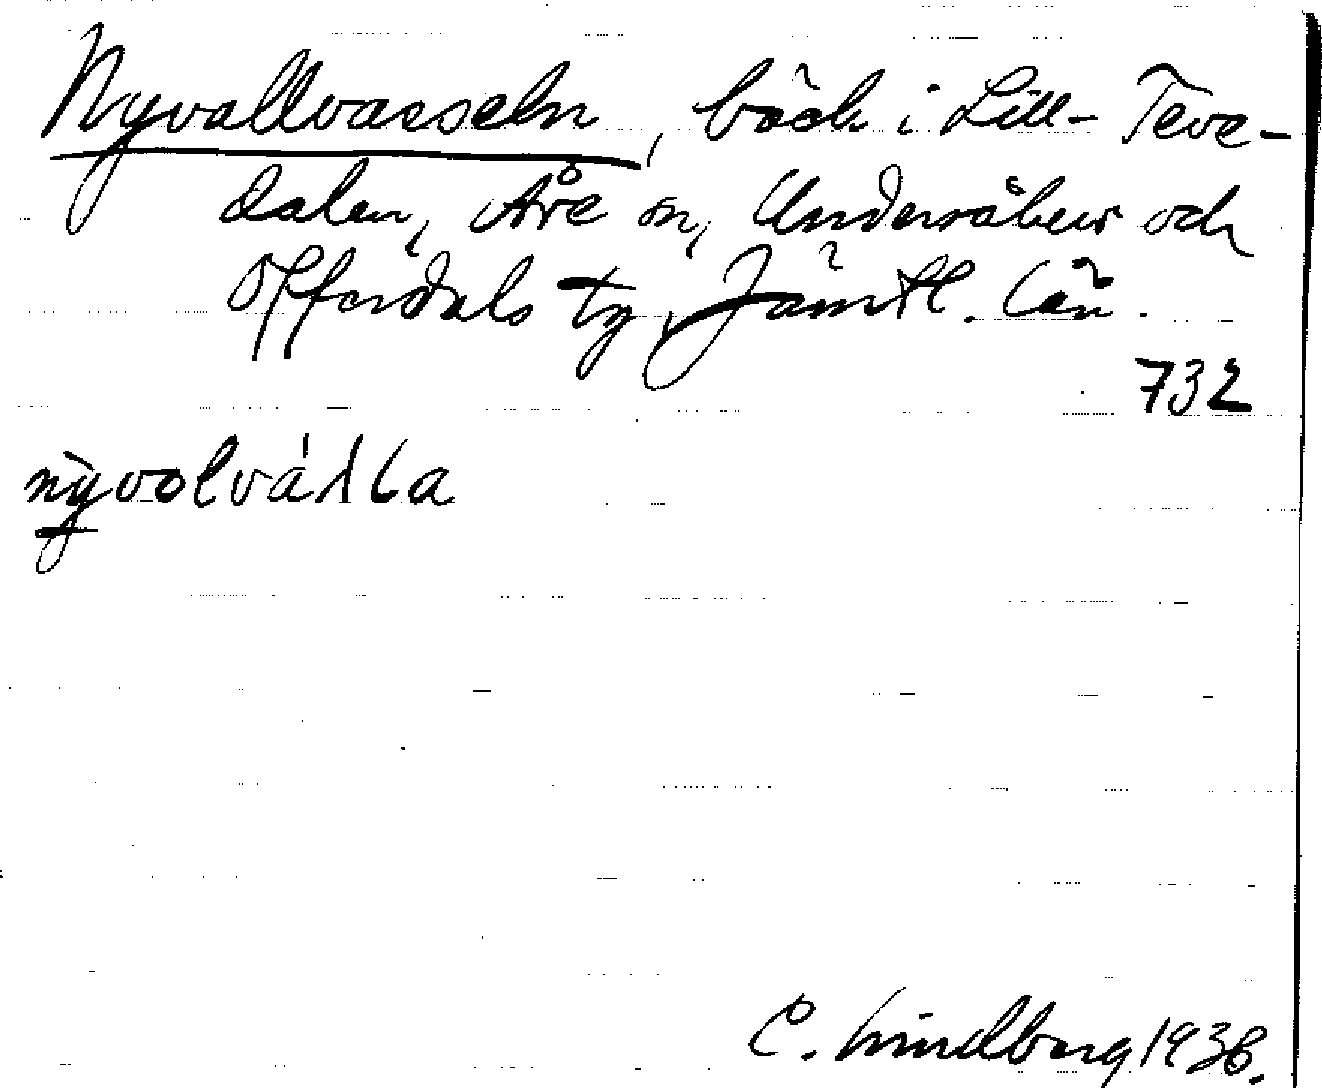 Nyvallvasseln, bäck i Lill-Teve-
dalen, Åre sn, Undersåkers och
Offerdals tg, Jämtl. län.
732
C. Lindberg 1936.